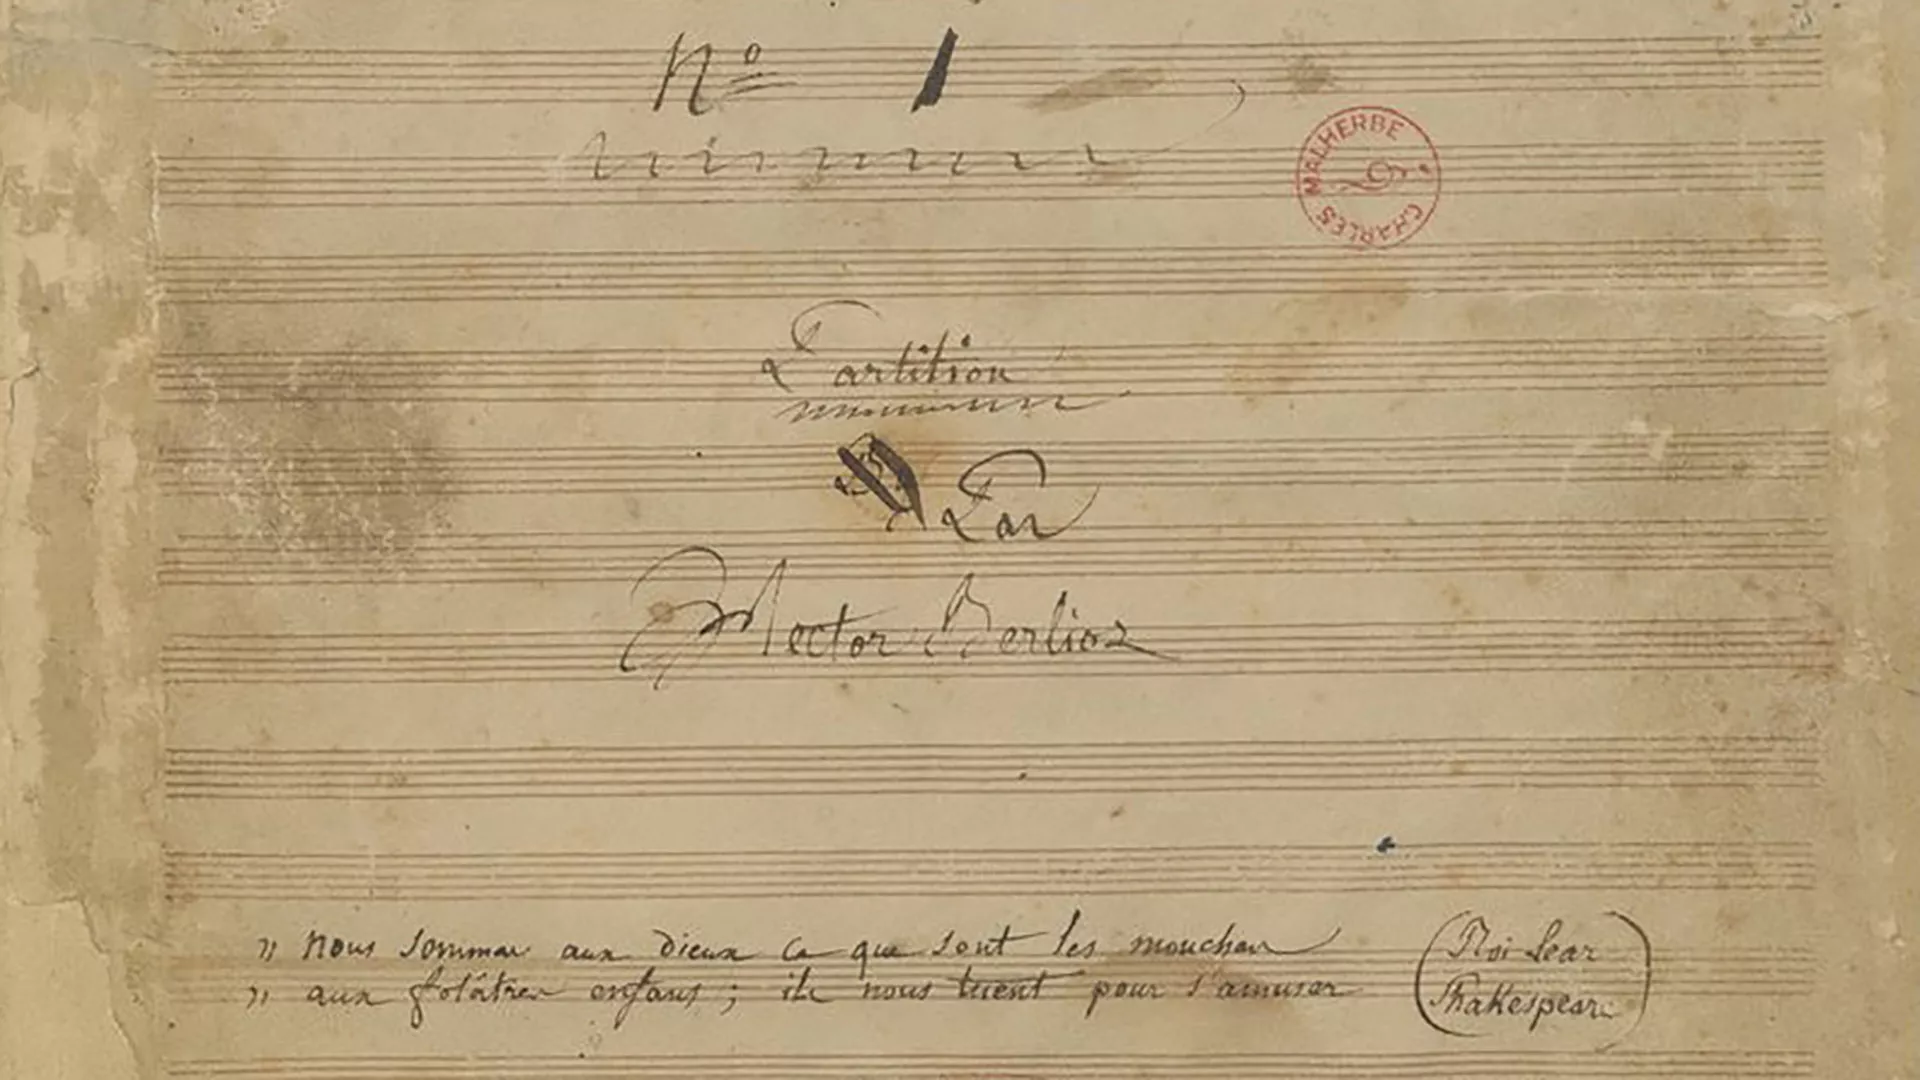 No 1
CHARLES MALHERBE
Partition
Par
Hector Berlioz
" nous sommes aux dieux ce que sont les mouches (Roi Lear
" aux folâtres enfans ; ils nous tuent pour s'amuser Shakespeare)